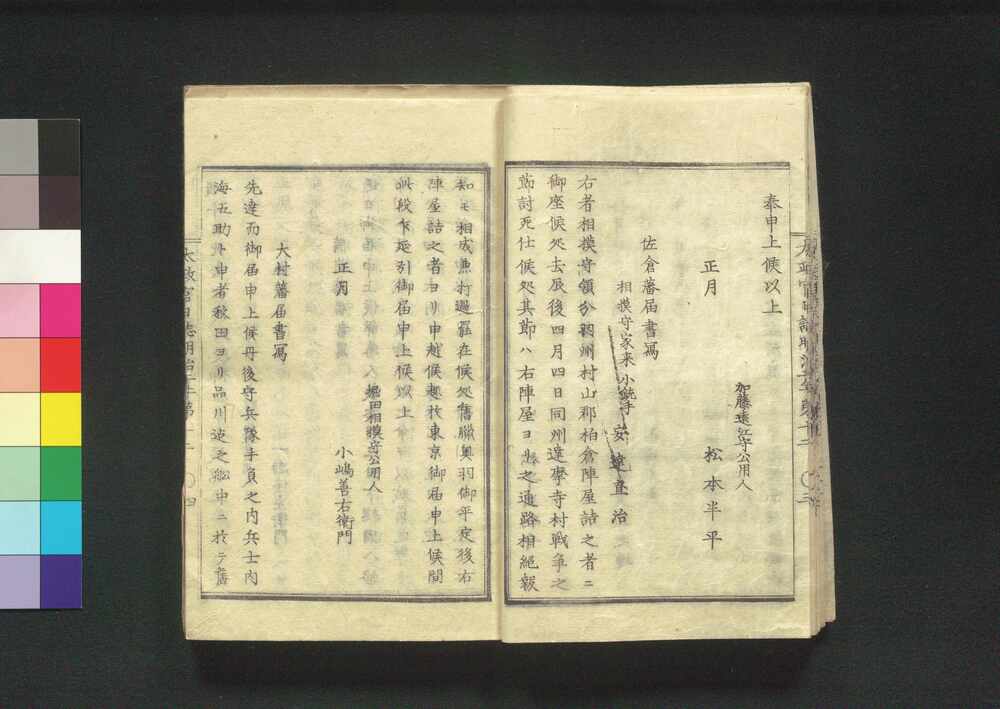 奉申上候以上
加藤遠江守公用人
正月　松本半平
佐倉藩届書寫
相摸守家来小銃手　安達直治
右者相摸守領分羽州村山郡柏倉陣屋詰之者ニ
御座候処去辰後四月四日同州達摩寺村戦争之
節討死仕候処其節ハ右陣屋ヨリ之通路相絶報
知モ相成兼打過罷在候処舊臘奥羽御平定後右
陣屋詰之者ヨリ申越候趣於東京御届申上候間
此段乍延引御届申上候以上
堀田相摸守公用人
正月　小嶋善右衛門
大村藩届書寫
先達而御届申上候丹後守兵隊手負之内兵士内
海五助ト申者秋田ヨリ品川迄之舩中ニ於テ舊